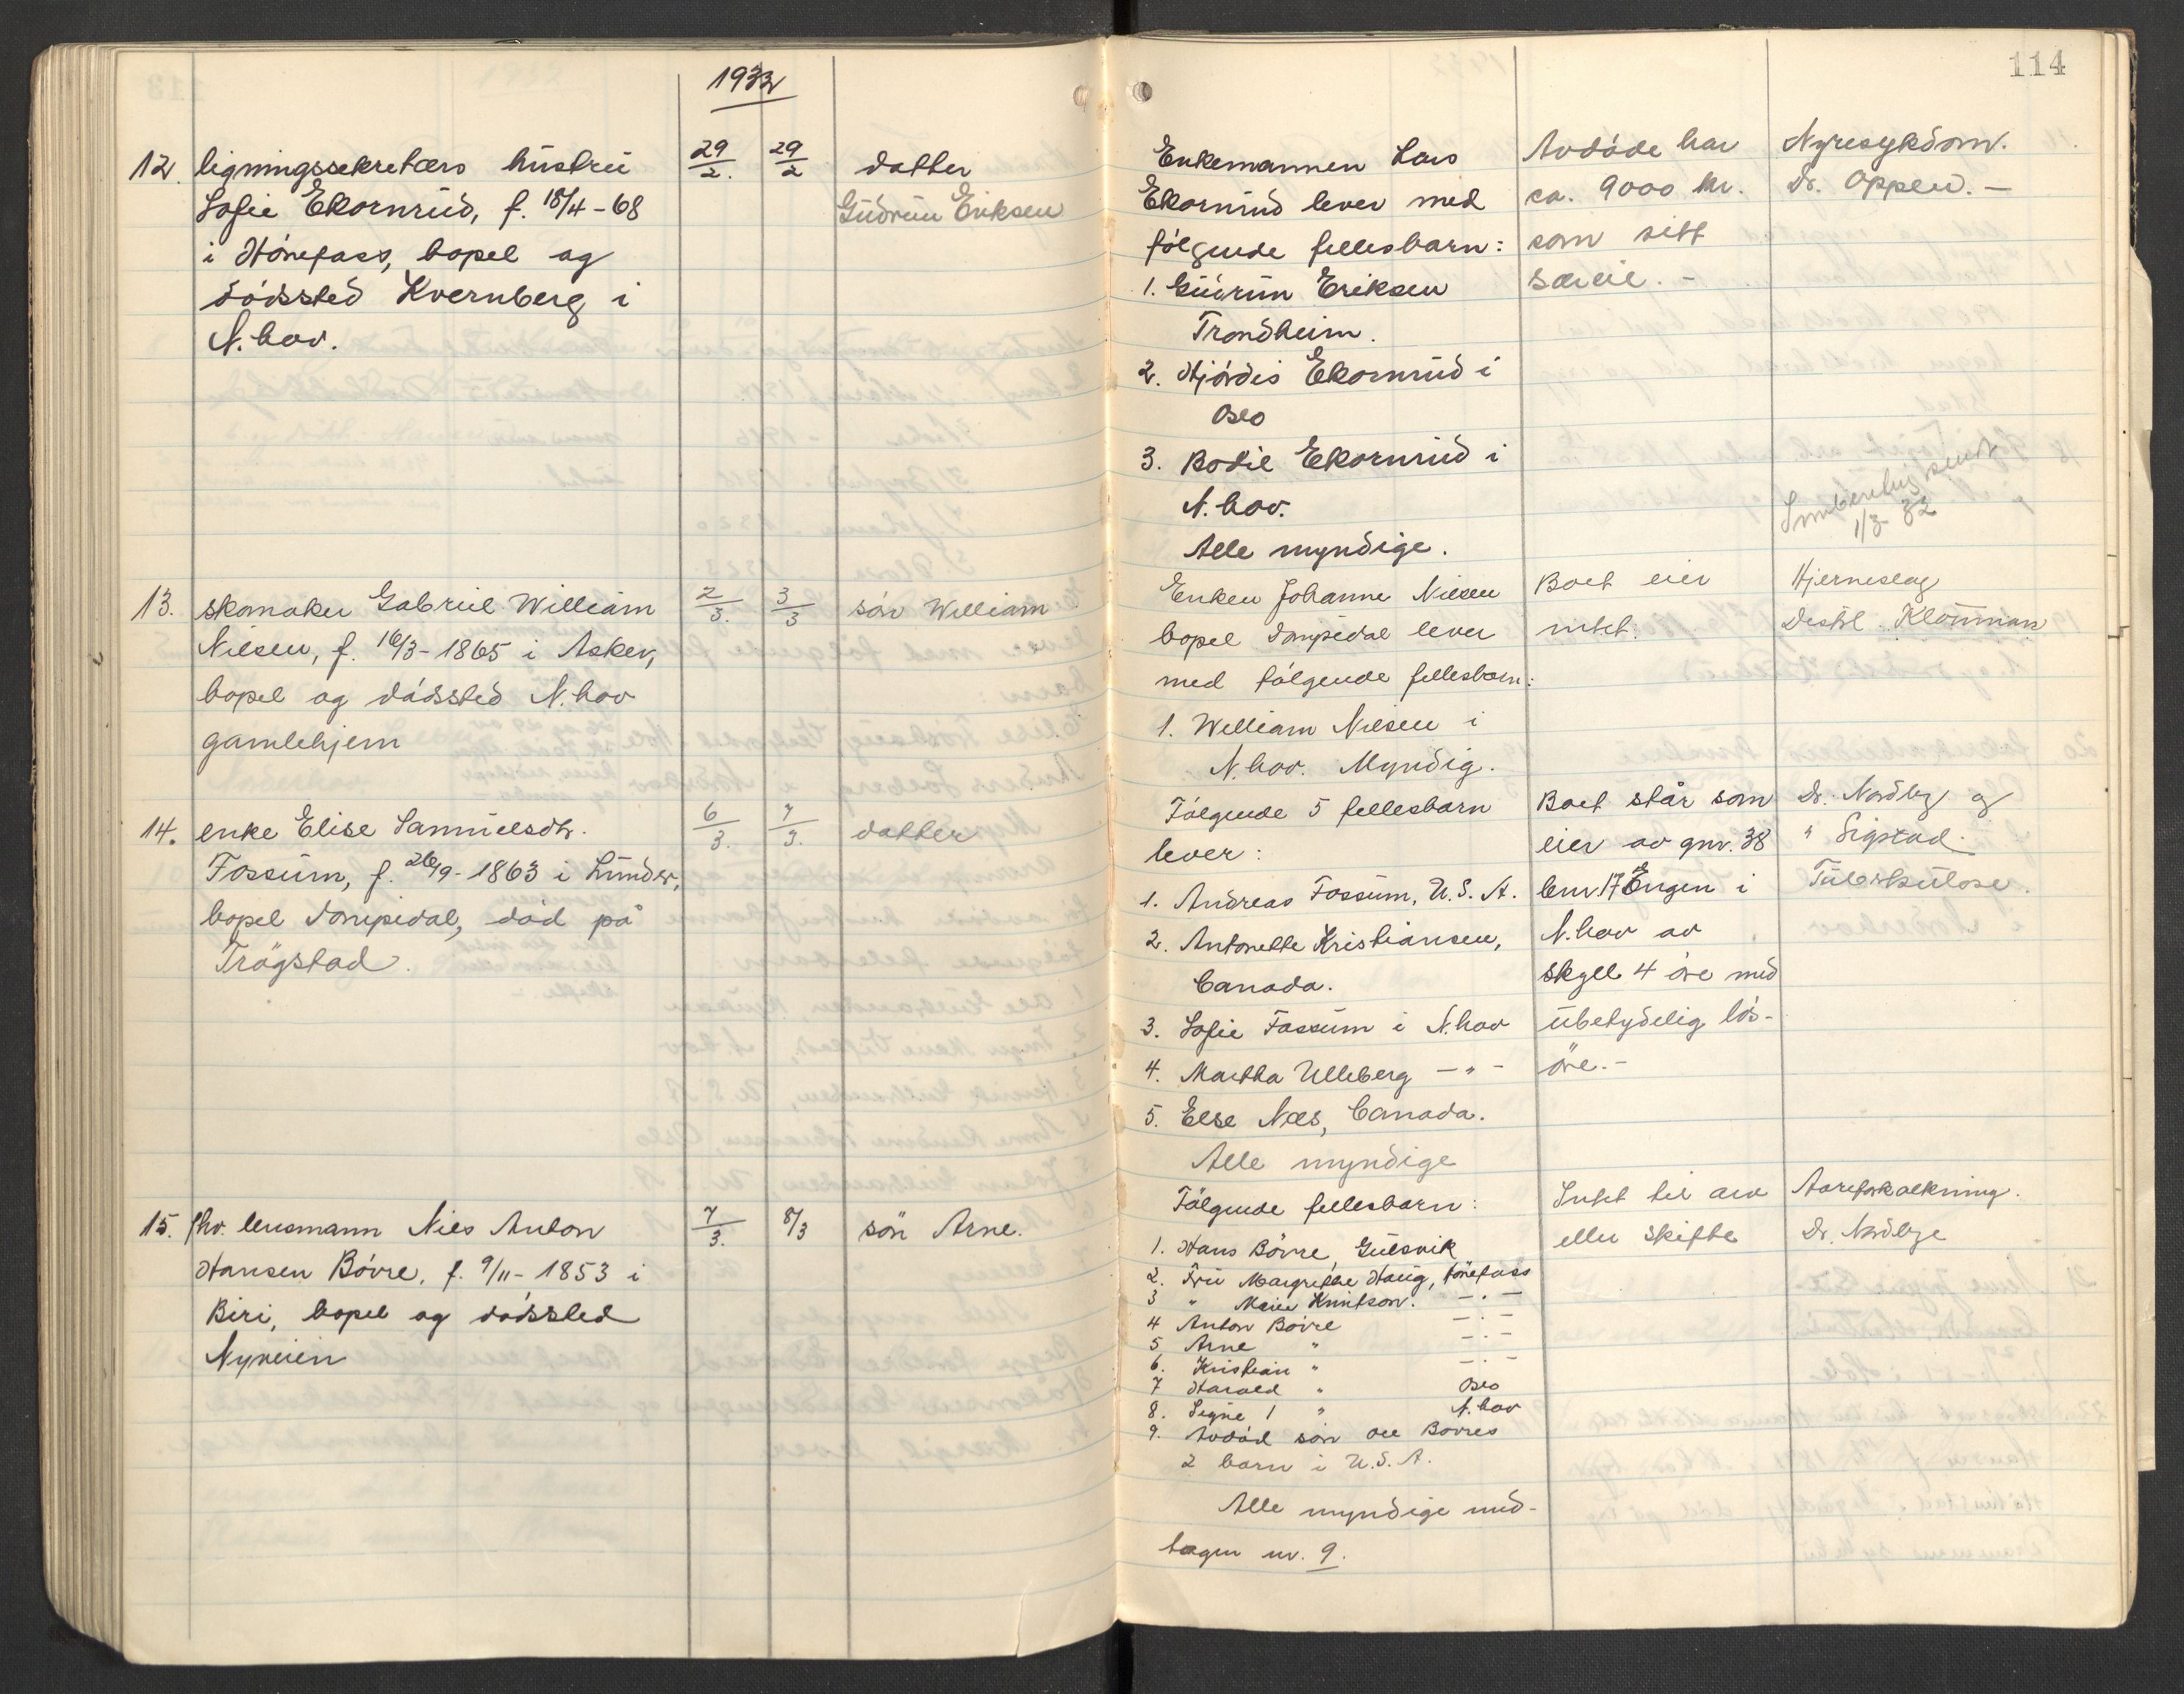 1932
114
12. ligningssekretærs hustru
Sofie Ekornrud, f. 18/4-68
i Hönefoss, bopel og
dödssted Kvernberg i
N.hov.
29/2. 29/2
datter
Gudrun Eriksen
Enkemannen Lars
Ekornrud lever med
følgende fellesbarn:
1. Gudrun Eriksen
Trondheim.
2. Hjördis Ekornrud i
Oslo
3. Bodil Ekornrud i
N.hov.
Alle myndige.
Avdöde har
ca. 9000 kr.
som sitt
særeie. -
Nyresykdom.
Dr. Oppen. -
sendt
1/3-32
13. skomaker Gabriel William
Nilsen, f. 16/3-1865 i Asker,
bopel og dödssted N.hov
gamlehjem
2/3. 3/3
sön William
Enken Johanne Nilsen
bopel Dompidal lever
med fölgende fellesbarn:
1. William Nilsen i
N.hov. Myndig.
Boet eier
intet.
Hjerneslag
Distrl. Klouman
14. enke Elise Samuelsdtr.
Fossum, f. 26/9-1863 i Lunder,
bopel Dompidal, död på
Trögstad.
6/3. 7/3.
datter
Fölgende 5 fellesbarn
lever:
1. Andreas Fossum, U.S.A.
2. Antonette Kristiansen,
Canada.
3. Sofie Fossum i N.hov
4. Martha Ulleberg - " -
5. Else Næs, Canada.
Alle myndige
Boet står som
eier av gnr. 38
bnr 17 Engen i
N.hov av
skyll 4 öre med
ubetydelig lös-
öre. -
Dr. Nordby og
" Sigstad.
Tuberkulose.
15. fhv. lensmann Nils Anton
Hansen Bövre, f. 9/11-1853 i
Biri, bopel og dödssted
Nyveien
7/3. 8/3
sön Arne.
Fölgende fellesbarn:
1. Hans Bövre, Gulsvik
2. Fru Margrethe Haug, Hönefoss
3 " Marie Knutson. - " -
4 Anton Bövre - " -
5 Arne " - " -
6. Kristian " - " -
7 Harald " Oslo
8. Signe " N.hov
9. Avdöd sön Ole Bövres
2 barn i U.S.A.
Alle myndige und-
tagen nr. 9.
Intet til arv
eller skifte
Aareforkalkning.
Dr. Nordbye